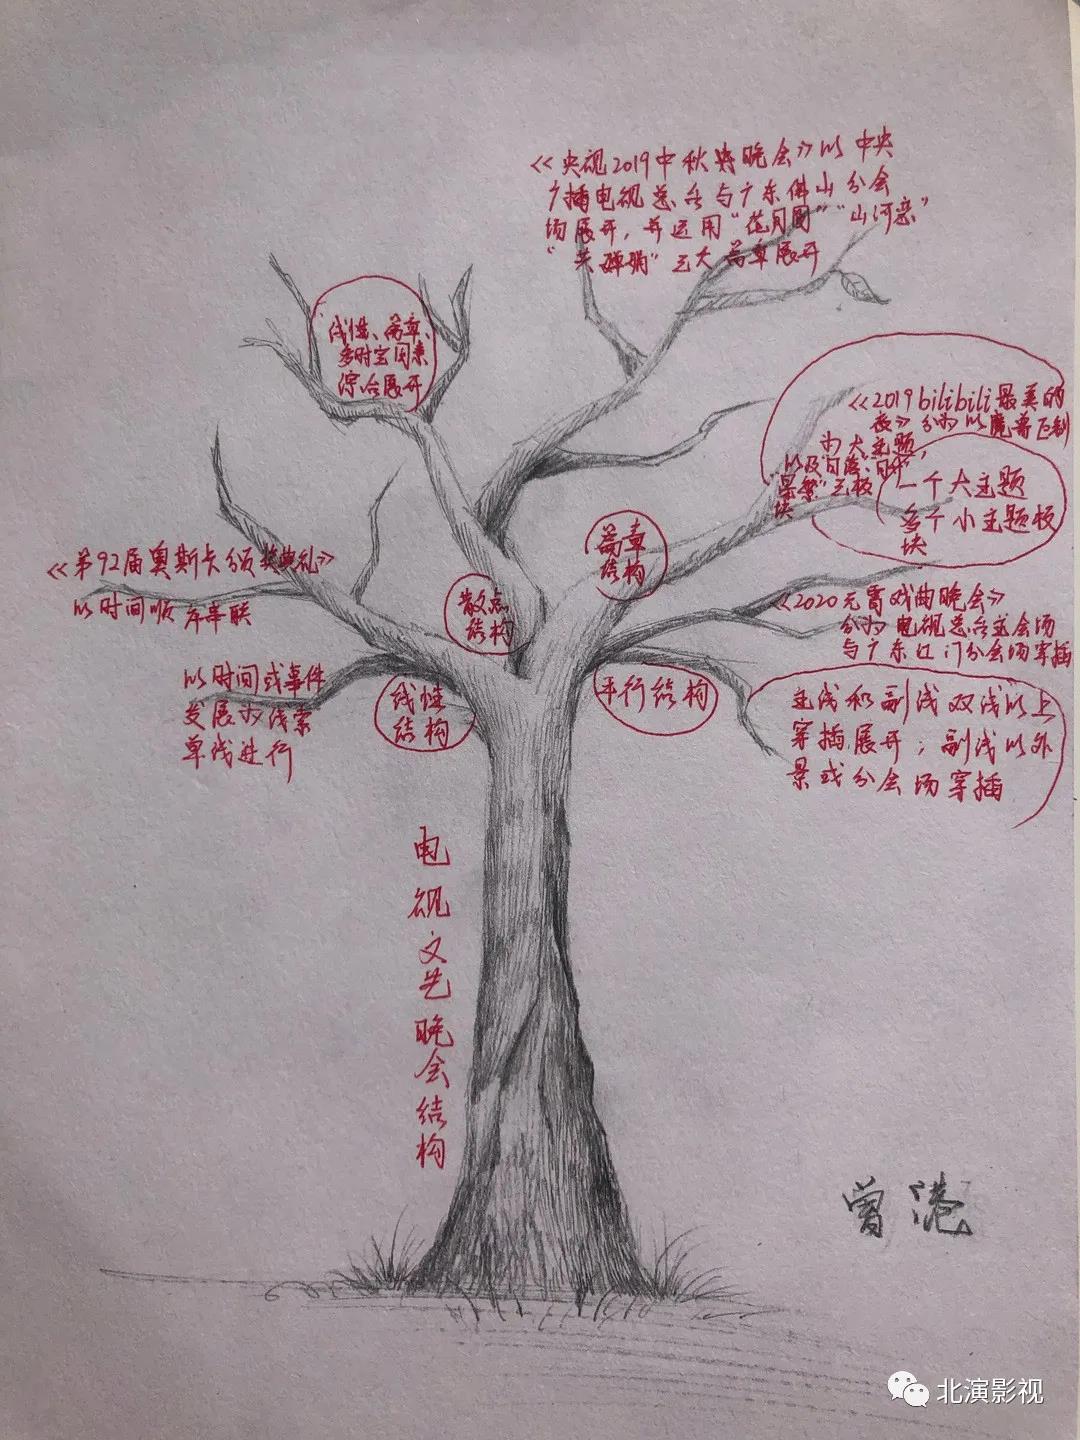 《央视2019中秋特晚会》以中央
广播电视总台与广东佛山分会
场展开，并运用“花月圆”“山河恋”
“共婵娟”三大篇章展开
线性、篇章、
多时空因素
综合展开
《2019bilibili最美的
夜》分为以
为大主题，
以及“日落”“月升”
“星繁”三板
块
一个大主题
多个小主题板
块
篇章
结构
散点
结构
《第92届奥斯卡颁奖典礼》
以时间顺序串联
《2020元宵戏曲晚会》
分为电视总台主会场
与广东江门分会场穿插
以时间或事件
发展为线索
单线进行
线性
结构
平行结构
主线和副线双线以上
穿插展开；副线以外
景或分会场穿插
电视文艺晚会结构
曾港
北演影视